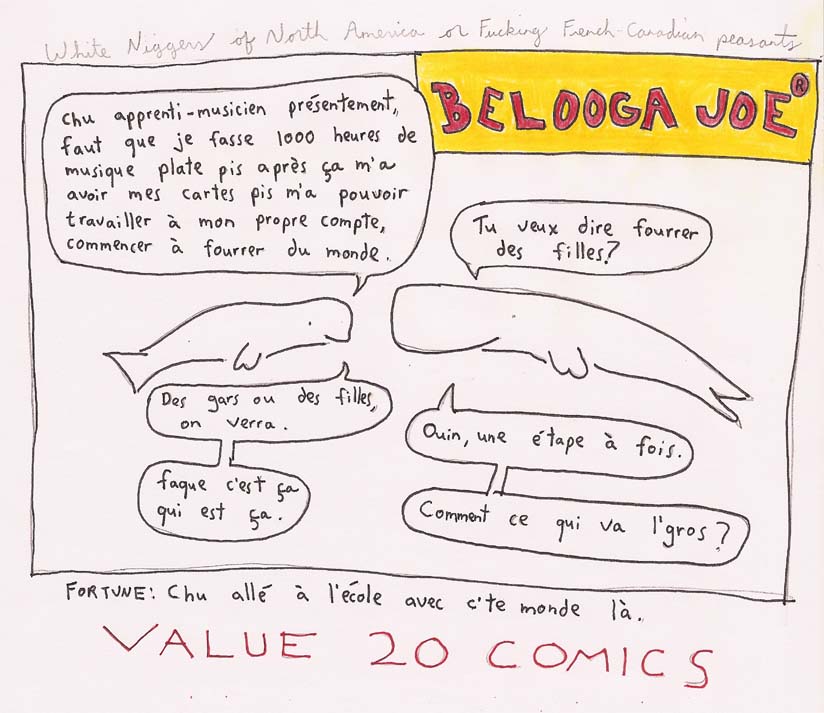 White Niggers of North America or Fucking French-Canadian peasants
BELOOGA JOE®
Chu apprenti-musicien présentement,
faut que je fasse 1000 heures de
musique plate pis après ça m'a
avoir mes cartes pis m'a pouvoir
travailler à mon propre compte,
commencer à fourrer du monde.
Tu veux dire fourrer
des filles?
Des gars ou des filles,
on verra.
faque c'est ça
qui est ça.
Ouin, une étape à fois.
Comment ce qui va l'gros?
FORTUNE: Chu allé à l'école avec c'te monde là.
VALUE 20 COMICS